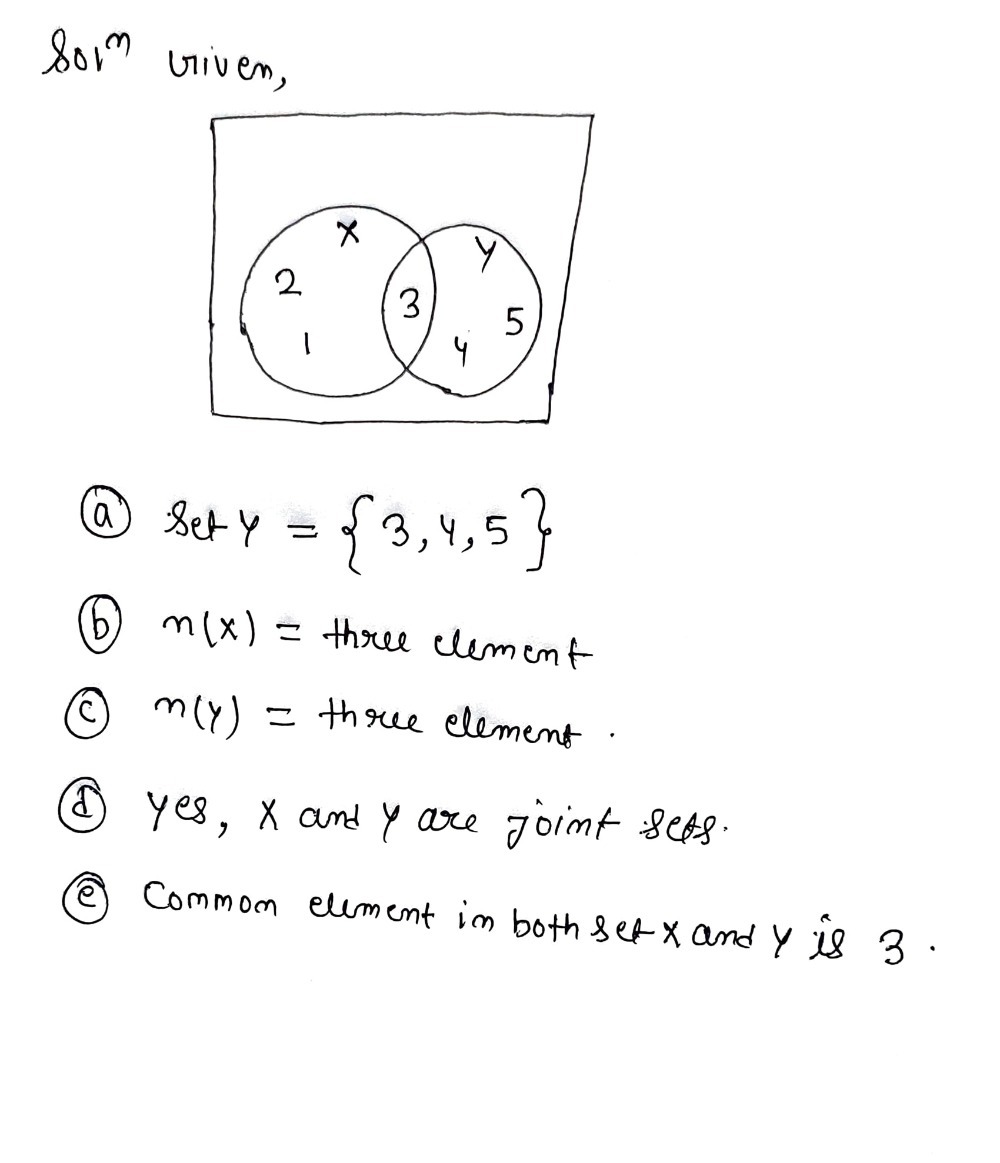 Solⁿ Given,
X Y
2 3 5
1 4
ⓐ Set Y = {3, 4, 5}
ⓑ n(x) = three element
ⓒ n(y) = three element.
ⓓ Yes, X and Y are joint sets.
ⓔ Common element in both set X and Y is 3.